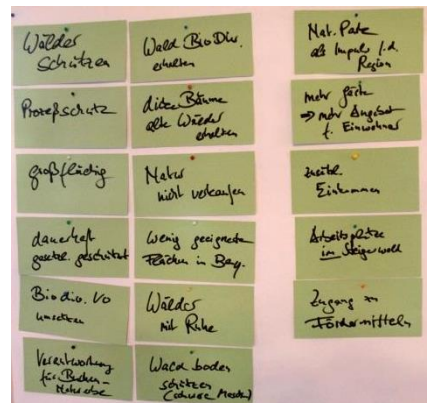 Wälder
Schützen
Prozeßschutz
großflächig
dauerhaft
gesetzl. geschützt
Biodiv. VO
umsetzen
Verantwortung
für Buchen-
Naturerbe
Wald BioDiv.
erhalten
dicke Bäume
alte Wälder
erhalten
Natur
nicht verkaufen
Wenig geeignete
Flächen in Bay.
Wälder
mit Ruhe
Waldboden
schützen
(schwere Masch.)
Nat. Park
als Impuls f. d.
Region
mehr Gäste
⇒ mehr Angebot
f. Einwohner
zusätzl.
Einkommen
Arbeitsplätze
im Steigerwald
Zugang zu
Fördermitteln